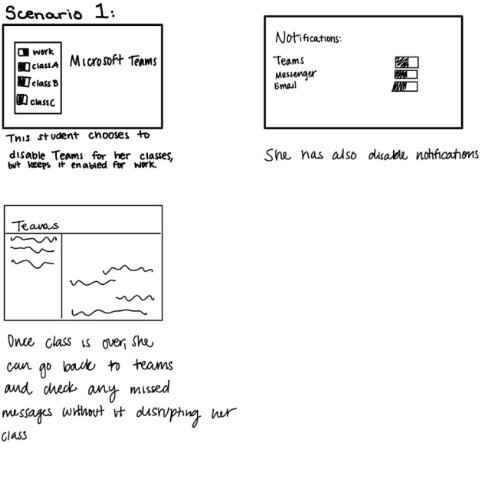 Scenario 1:
work
class A
class B
class C
Microsoft Teams
This student chooses to
disable Teams for her classes,
but keeps it enabled for work.
Notifications:
Teams
Messenger
Email
She has also disable notifications
Teams
Once class is over, she
can go back to teams
and check any missed
messages without it disrupting her
class